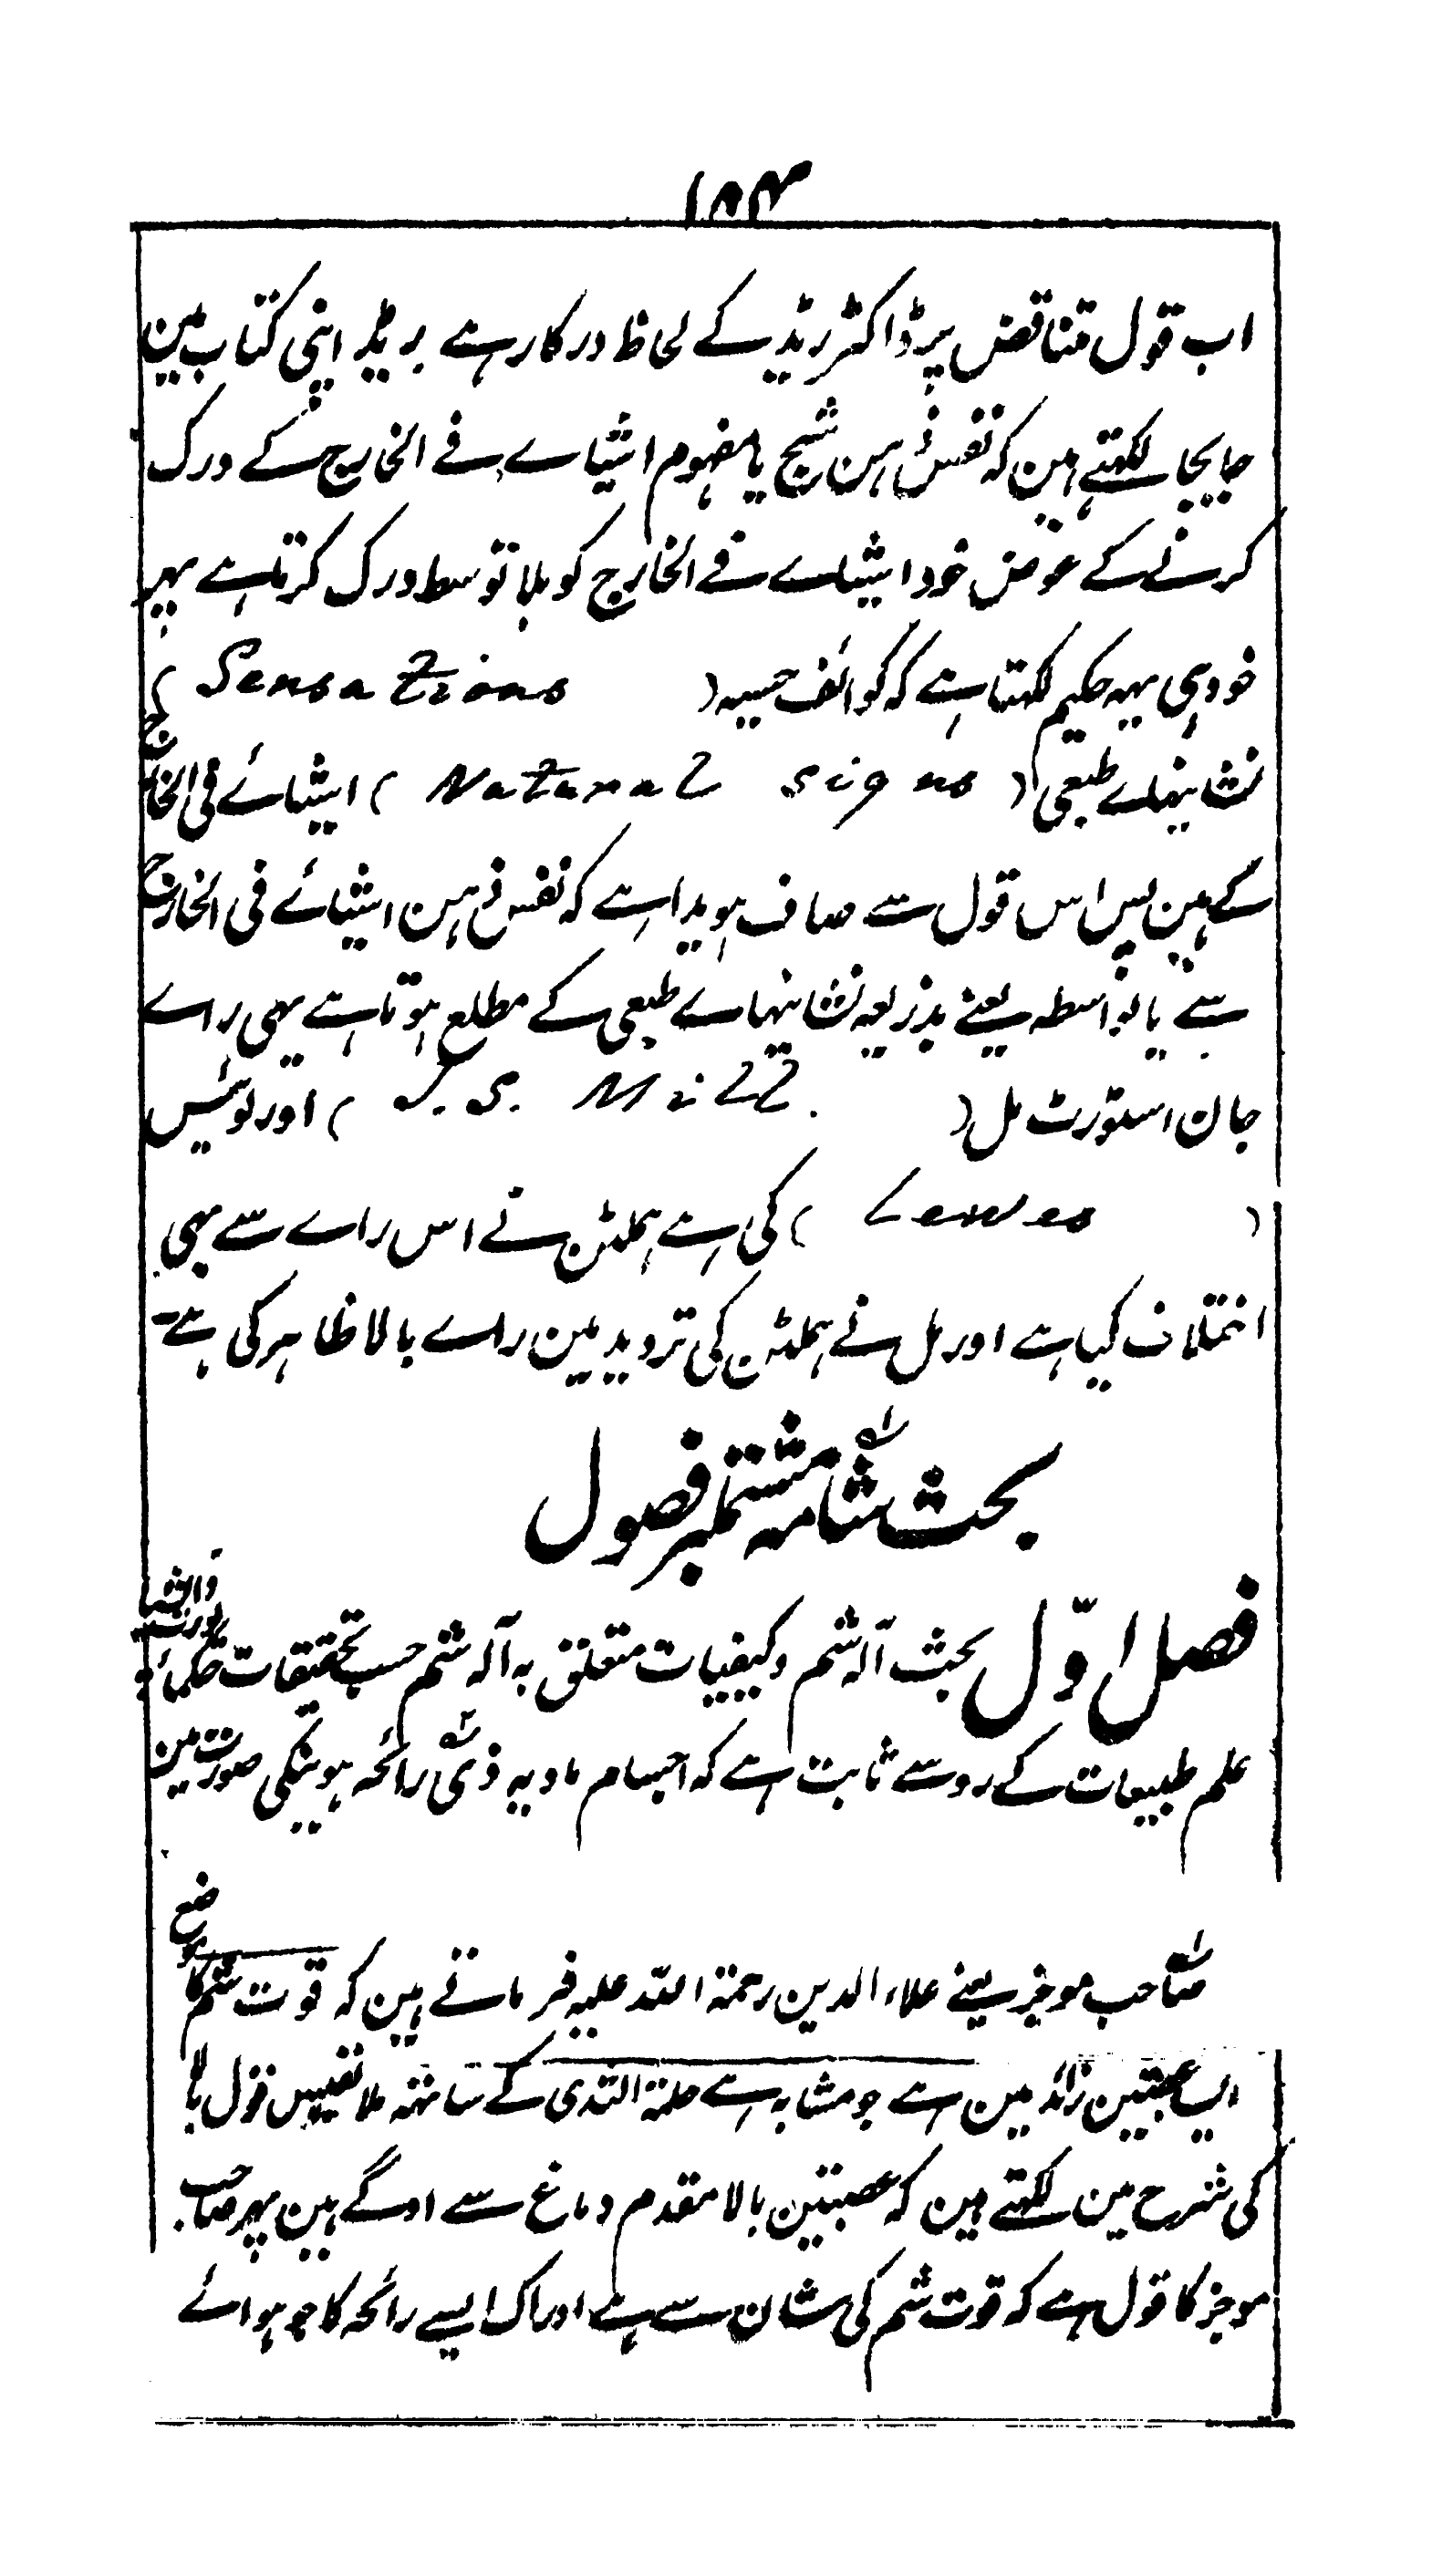 ۱۵۴
اب قول متناقض پر ڈاکٹر ریڈ کے لحاظ درکار ہے بریڈلے اپنی کتاب مین
جابجا لکھتے ہین کہ نفس ذہن شبح یا مفہوم اشیاے فے الخارج کے درک
کرنے کے عوض خود اشیاے فے الخارج کو بلا توسط درک کرتا ہے پہر
خود ہی یہہ حکیم لکھتا ہے کہ کوائف حسیہ ( Sensations )
نشانیہاے طبعی ( Natural signs ) اشیائے فی الخارج
کے ہین پس اس قول سے صاف ہویدا ہے کہ نفس ذہن اشیائے فی الخارج
سے بالواسطہ یعنے بذریعہ نشانیہاے طبعی کے مطلع ہوتا ہے یہی راے
جان اسٹورٹ مل ( J. S. Mill. ) اور لوئیس
( Lewes ) کی ہے ہملٹن نے اس راے سے بہی
اختلاف کیا ہے اور مل نے ہملٹن کی تردید مین راے بالا ظاہر کی ہے۔
بحث شامہ مشتملبر فصول
فصل اوّل بحث آلہ شم و کیفیات متعلق بہ آلہ شم حسب تحقیقات حکمائے
علم طبیعات کے روسے ثابت ہے کہ اجسام مادیہ ذی رائحہ ہونیکی صورت مین
صاحب موجز یعنے علاء الدین رحمۃ اللہ علیہ فرماتے ہین کہ قوت شم کا موضع
ایسے عصبتین زائد مین ہے جو مشابہ ہے حلمۃ الثدی کے ساتھہ ملا نفیس قول بالا
کی شرح مین لکھتے ہین کہ عصبتین بالا مقدم دماغ سے اوگے ہین پہر صاحب
موجز کا قول ہے کہ قوت شم کی شان سے ہے ادراک ایسے رائحہ کا جو ہوائے